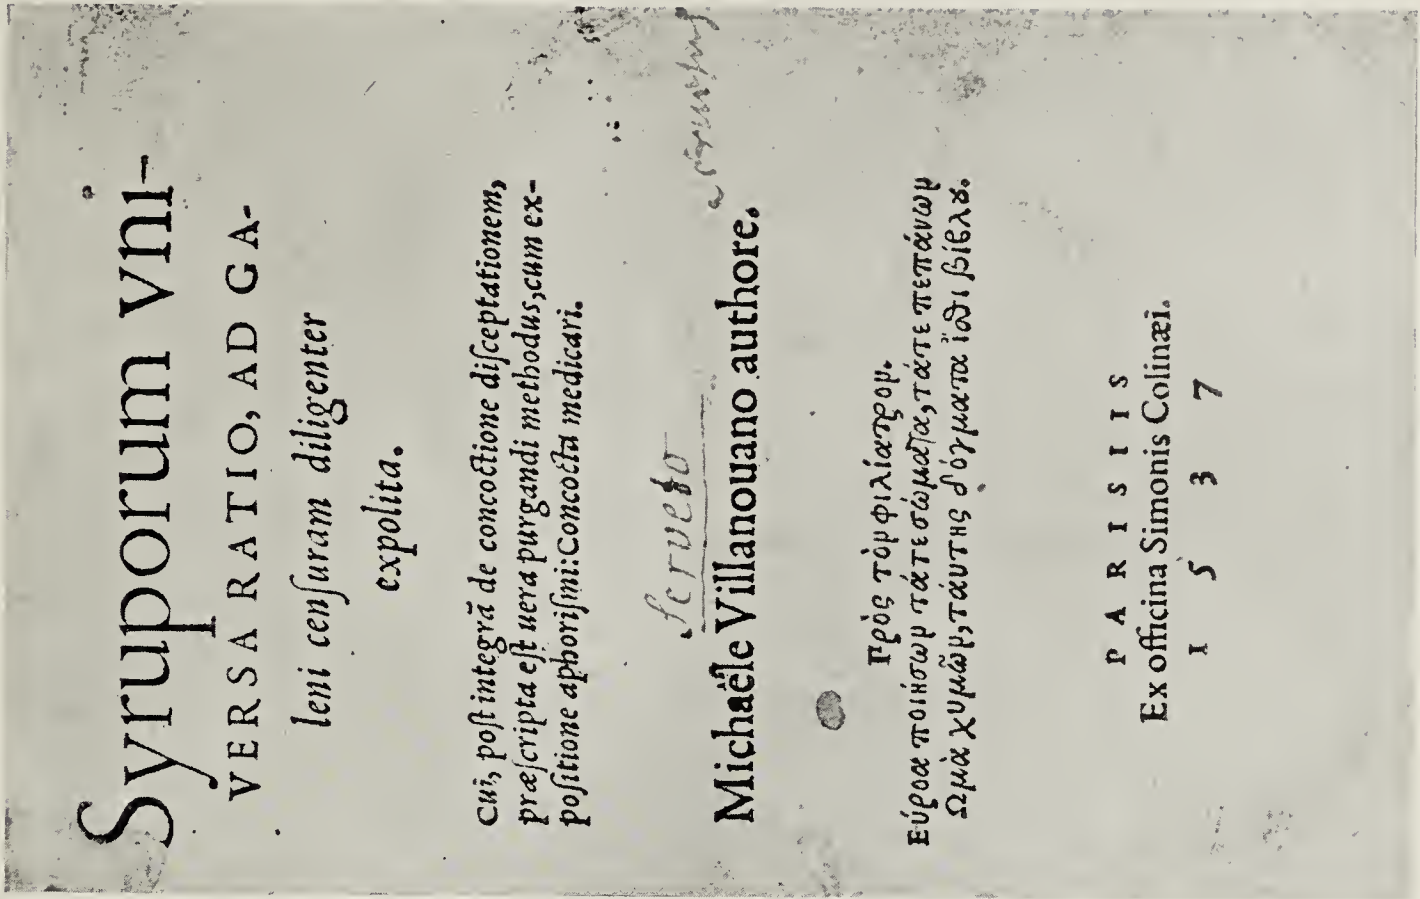 Syruporum vni-
VERSA RATIO, AD GA-
leni cenſuram diligenter
expolita.
Cui, poſt integrã de concoctione diſceptationem,
præſcripta eſt uera purgandi methodus, cum ex-
poſitione aphoriſmi: Concocta medicari.
Serueto
Michaële Villanouano authore.
Πρὸς τὸμ φιλίατρομ.
Εὔροα ποιήσωμ τάτε σώματα, τάτε πεπάνωμ
Ωμὰ χυμῶμ, ταύτης δόγματα ἴσθι βίβλȣ.
PARISIIS
Ex officina Simonis Colinæi.
1537